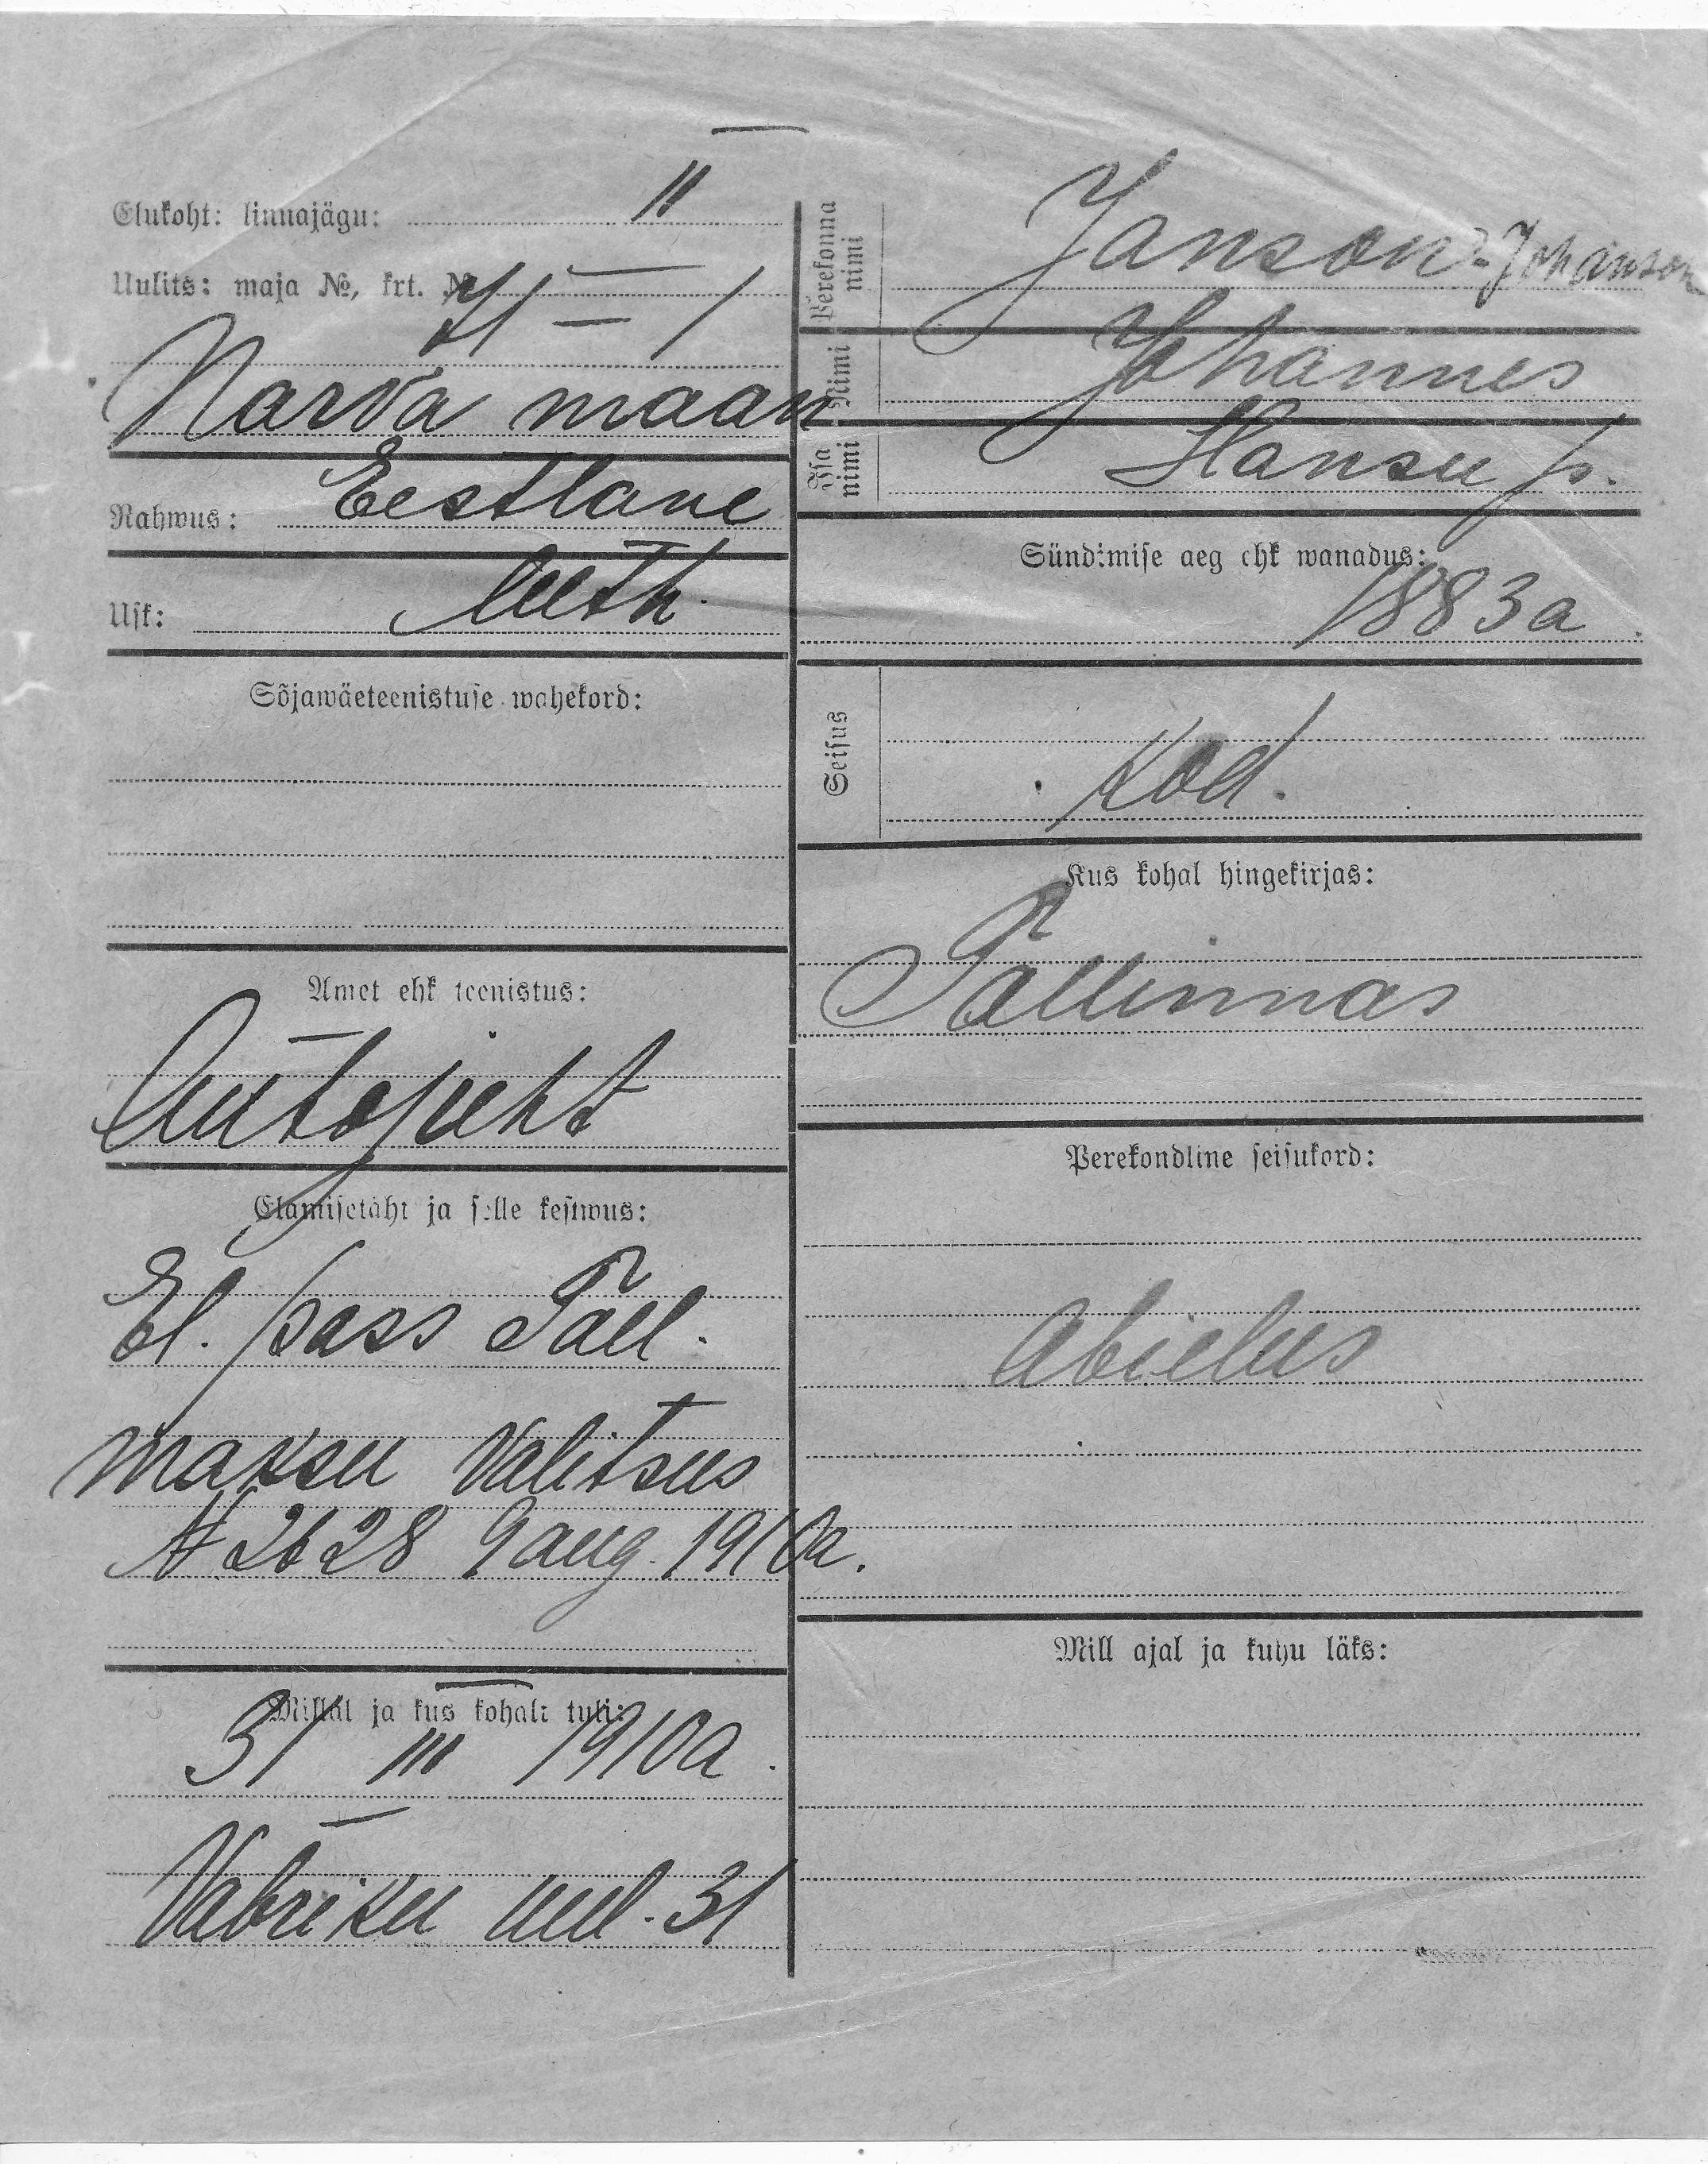 Elukoht: linnajägu: II
Uulits: maja №, krt. №
71 — 1
Narva maan.
Rahwus: Eestlane
Usk: Luth.
Sõjawäeteenistuse wahekord:
Amet ehk teenistus:
Autojuht
Elamisetäht ja selle kestwus:
El. pass Tall.
maksu Valitsus
№ 2628 9 aug. 1910a.
Millal ja kus kohalt tuli:
31 III 1910a.
Vabriku uul. 31
Perekonna nimi
Janson-Johanson
Nimi
Johannes
Isa nimi
Hansu p.
Sündimise aeg ehk wanadus:
1883a
Seisus
Kod.
Kus kohal hingekirjas:
Tallinnas
Perekondline seisukord:
Abielus
Mill ajal ja kuhu läks: